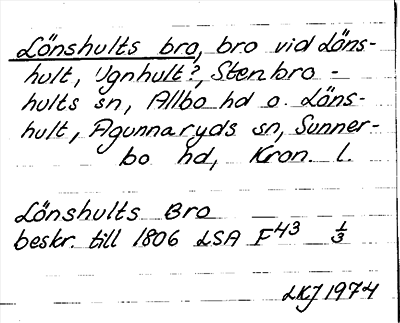 Lönshults bro, bro vid Löns-
hult, Ygnhult?, Stenbro-
hults sn, Allbo hd o. Löns-
hult, Agunnaryds sn, Sunner-
bo hd, Kron. l.
Lönshults Bro
beskr. till 1806 LSA F43 1/3
LKJ 1974